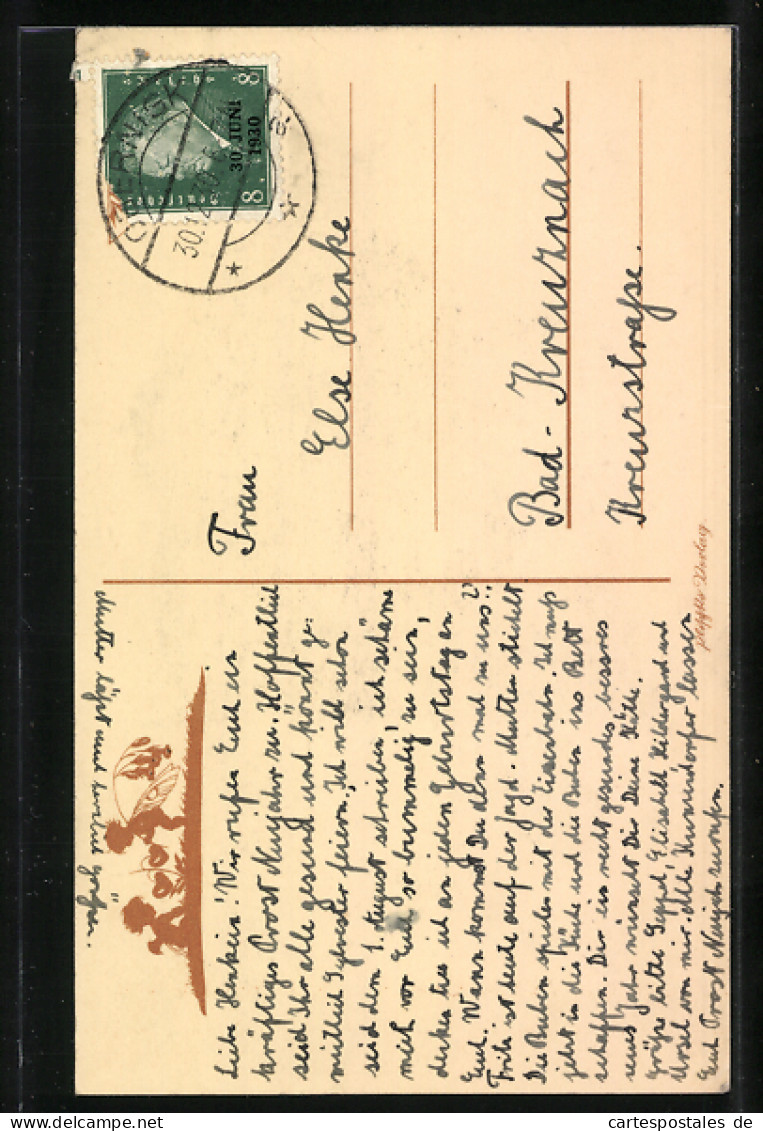 Liebe Henkein! Wir rufen Euch ein
kräftiges Prost Neujahr zu. Hoffentlich
seid Ihr alle gesund und könnt ge-
mütlich Sylvester feiern. Ich wollt schon
seid dem 1. August schreiben, ich schäme
mich vor Euch so bummelig zu sein,
denken tue ich an jeden Geburtstagen
Euch. Wann kommst Du denn mal zu uns??
Fritz ist heute auf der Jagd. Mutter stickt
Die Buben spielen mit der Eisenbahn. Ich muß
jetzt in die Küche und die Buben ins Bett
schaffen. Dir ein recht gesundes, besseres
neues Jahr wünscht Dir Deine Käthe.
Grüße bitte Seppel, Elisabeth Hildegard und
Ursel von mir. Alle lassen
Euch Prost Neujahr zurufen.
Mutter läßt auch herzlich grüßen.
Frau
Else Henke
Bad-Kreuznach
Kreuzstraße.
Verlag
8 8
30. JUNI
1930
30.12.30